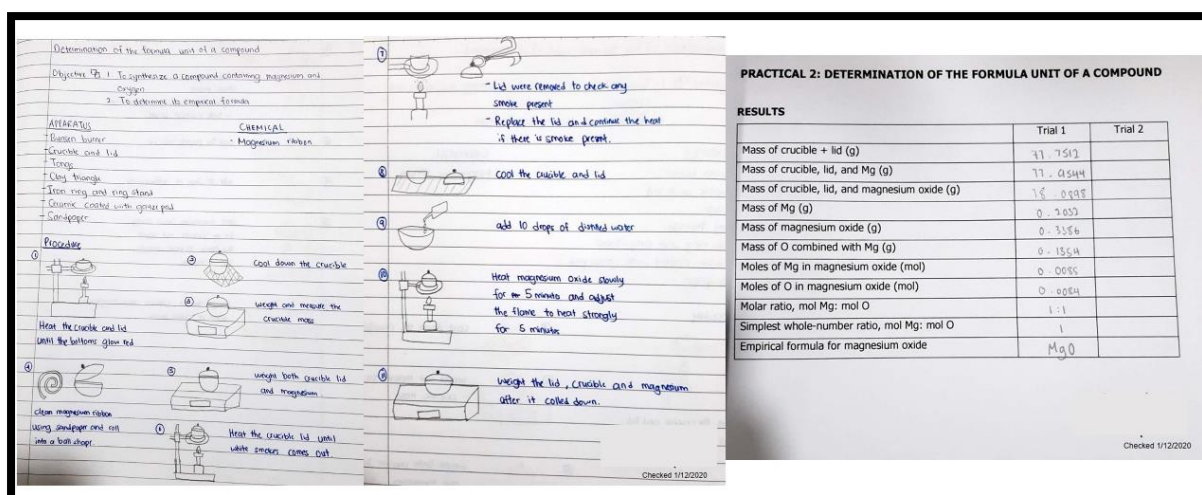 Determination of the formula unit of a compound
Objective 1. To synthesize a compound containing magnesium and
oxygen
2. To determine its empirical formula
APPARATUS
- Bunsen burner
- Crucible and lid
- Tongs
- Clay triangle
- Iron ring and ring stand
- Ceramic coated with
- Sandpaper
CHEMICAL
- Magnesium ribbon
Procedure
①
Heat the crucible and lid
until the bottoms glow red
②
Cool down the crucible
weight and measure the
crucible mass
④
clean magnesium ribbon
using sandpaper and coil
into a ball shape.
⑤
weight both crucible lid
and magnesium.
⑥
Heat the crucible lid until
white smokes comes out
⑦
- Lid were removed to check any
smoke present
- Replace the lid and continue the heat
if there is smoke present.
⑧
cool the crucible and lid
⑨
add 10 drops of distilled water
⑩
Heat magnesium oxide slowly
for 5 minutes and adjust
the flame to heat strongly
for 5 minutes
⑪
weight the lid, crucible and magnesium
after it colled down.
Checked 1/12/2020
PRACTICAL 2: DETERMINATION OF THE FORMULA UNIT OF A COMPOUND
RESULTS
Trial 1 Trial 2
Mass of crucible + lid (g) 77.7512
Mass of crucible, lid, and Mg (g) 77.9544
Mass of crucible, lid, and magnesium oxide (g) 18.0898
Mass of Mg (g) 0.2032
Mass of magnesium oxide (g) 0.3386
Mass of O combined with Mg (g) 0.1354
Moles of Mg in magnesium oxide (mol) 0.0085
Moles of O in magnesium oxide (mol) 0.0084
Molar ratio, mol Mg: mol O 1:1
Simplest whole-number ratio, mol Mg: mol O 1
Empirical formula for magnesium oxide MgO
Checked 1/12/2020